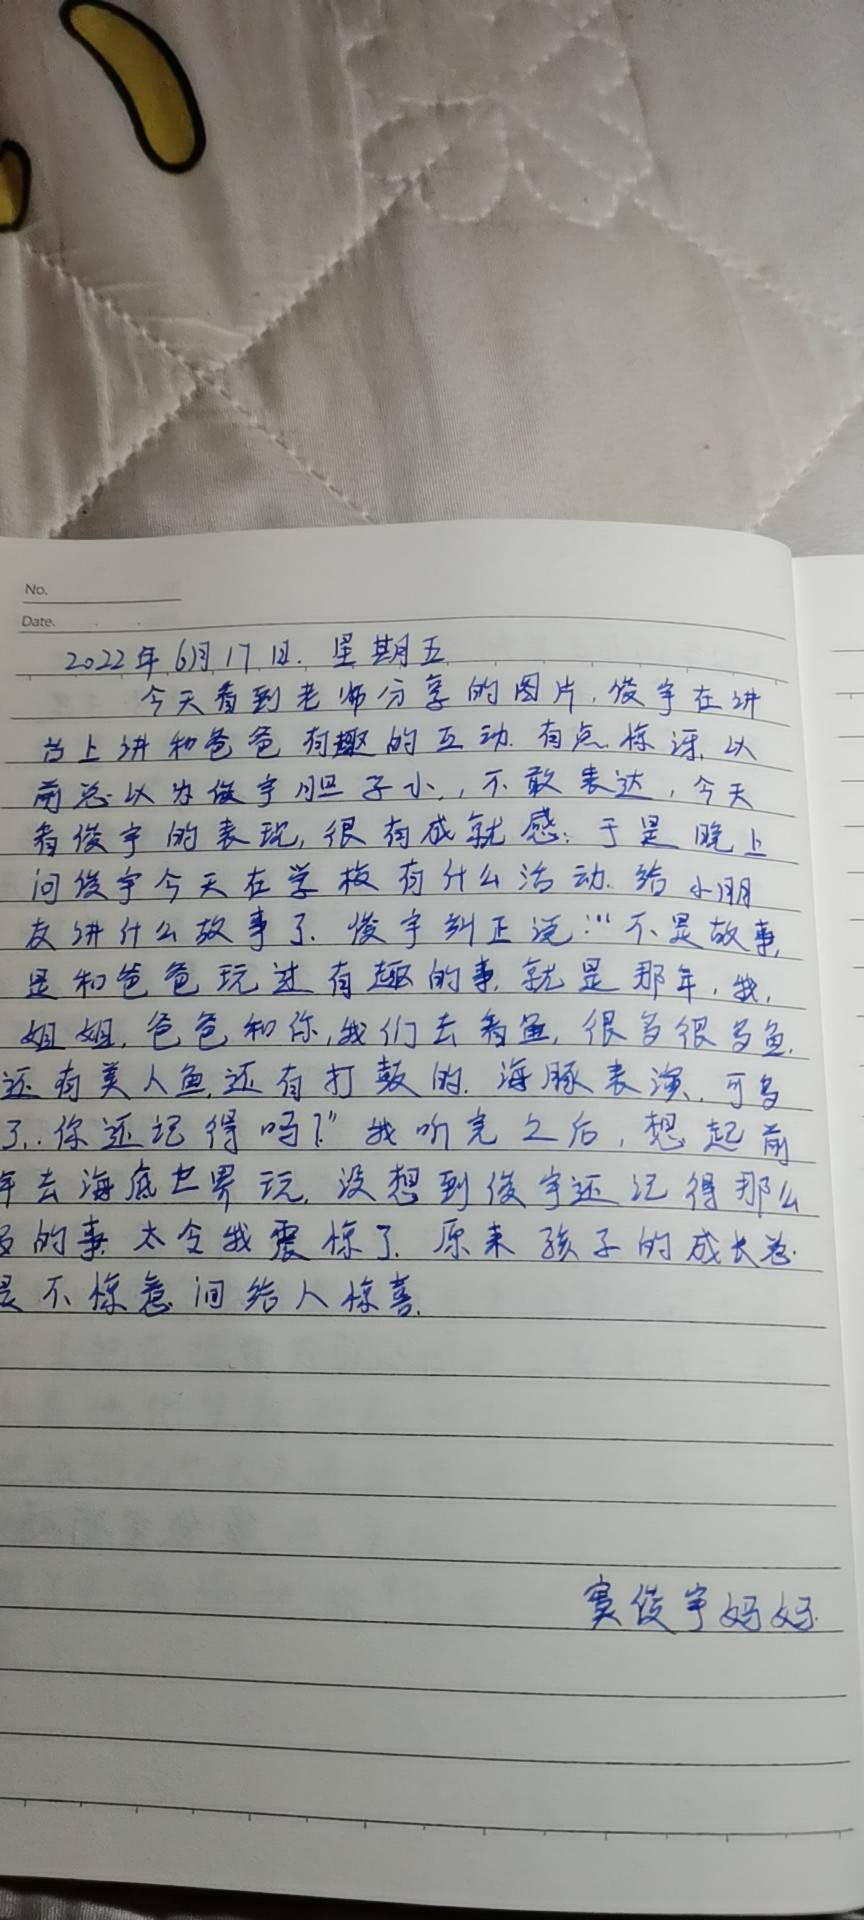 No.
Date.
2022年6月17日. 星期五
今天看到老师分享的图片,俊宇在讲
台上讲和爸爸有趣的互动.有点惊讶,以
前总以为俊宇胆子小,,不敢表达,今天
看俊宇的表现,很有成就感;于是晚上
问俊宇今天在学校有什么活动.给小朋
友讲什么故事了.俊宇纠正说:"不是故事,
是和爸爸玩过有趣的事,就是那年,我,
姐姐,爸爸和你,我们去看鱼,很多很多鱼.
还有美人鱼,还有打鼓的.海豚表演,可多
了,.你还记得吗?"我听完之后,想起前
年去海底世界玩,没想到俊宇还记得那么
多的事.太令我震惊了.原来孩子的成长总
是不惊意间给人惊喜.
窦俊宇妈妈.